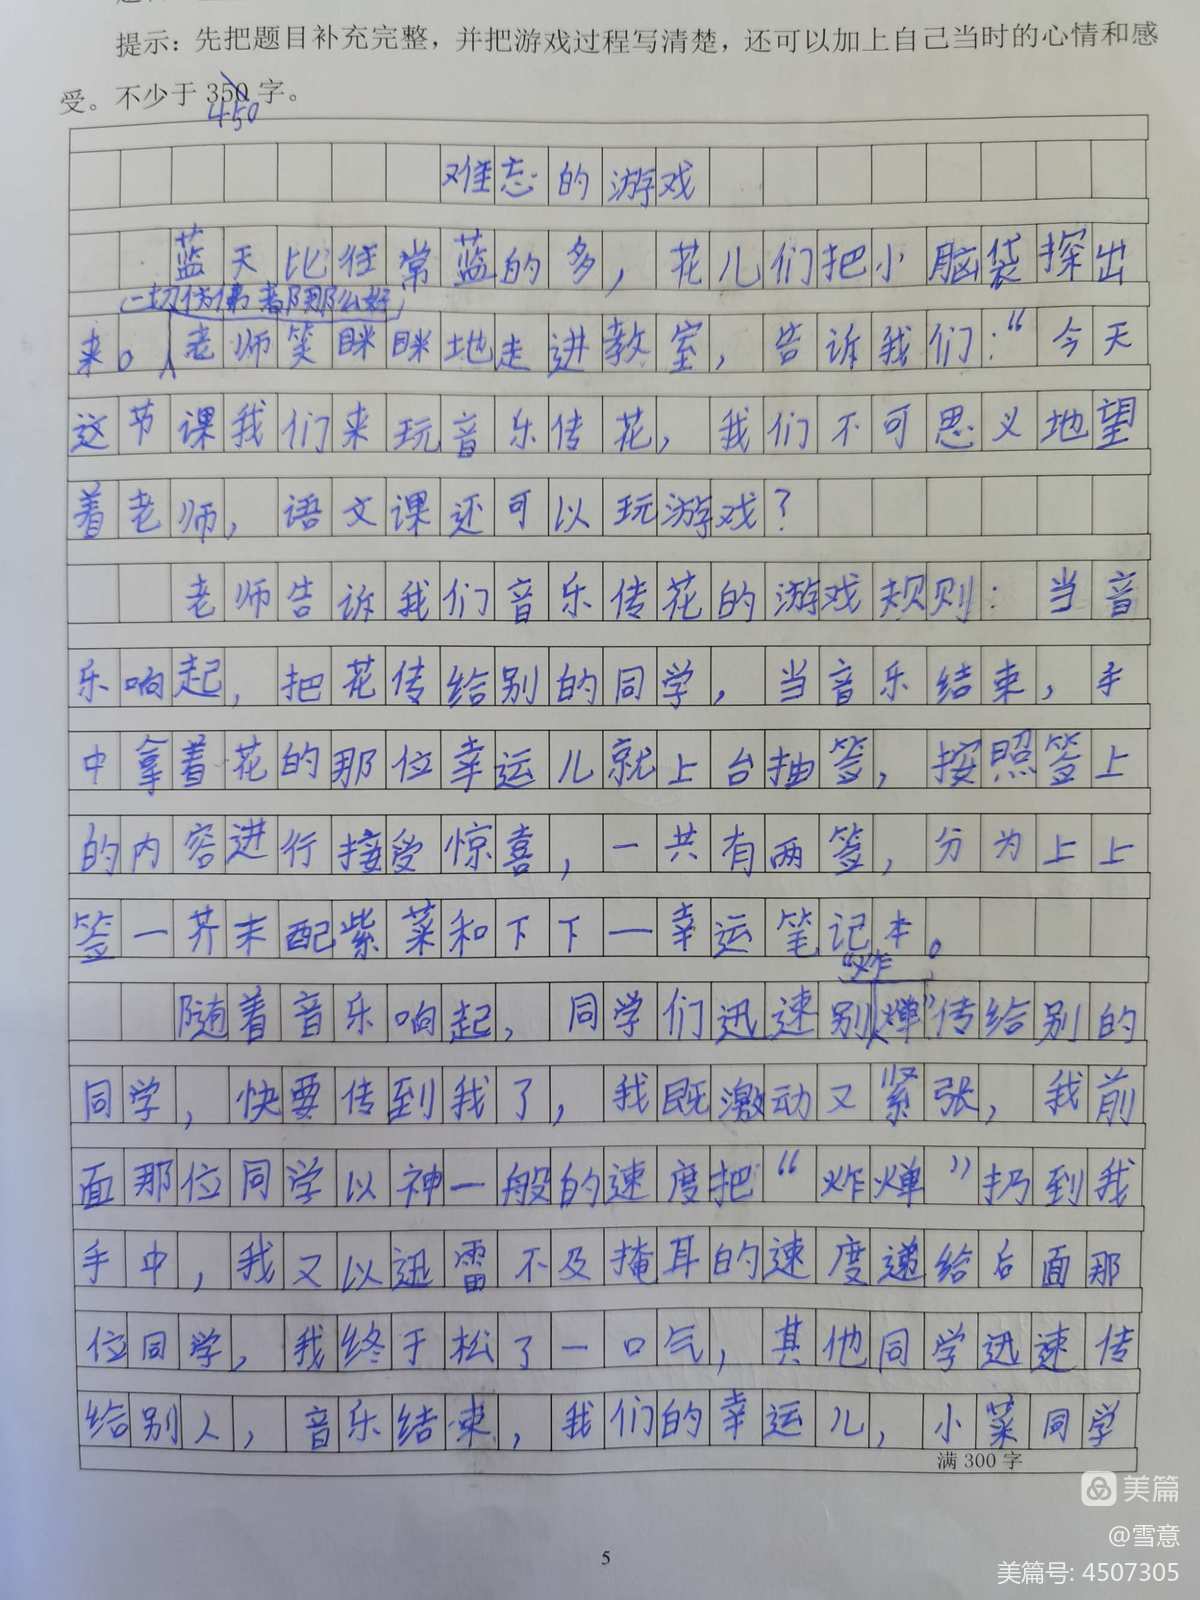 提示：先把题目补充完整，并把游戏过程写清楚，还可以加上自己当时的心情和感
受。不少于 350 字。
450
难忘的游戏
蓝天比往常蓝的多，花儿们把小脑袋探出
一切仿佛着那么好
来。老师笑眯眯地走进教室，告诉我们：“今天
这节课我们来玩音乐传花，我们不可思义地望
着老师，语文课还可以玩游戏？
老师告诉我们音乐传花的游戏规则：当音
乐响起，把花传给别的同学，当音乐结束，手
中拿着花的那位幸运儿就上台抽签，按照签上
的内容进行接受惊喜，一共有两签，分为上上
签一芥末配紫菜和下下一幸运笔记本。
“炸
随着音乐响起，同学们迅速别惮”传给别的
同学，快要传到我了，我既激动又紧张，我前
面那位同学以神一般的速度把“炸惮”扔到我
手中，我又以迅雷不及掩耳的速度递给后面那
位同学，我终于松了一口气，其他同学迅速传
给别人，音乐结束，我们的幸运儿，小菜同学
满 300 字
5
美篇
@雪意
美篇号: 4507305